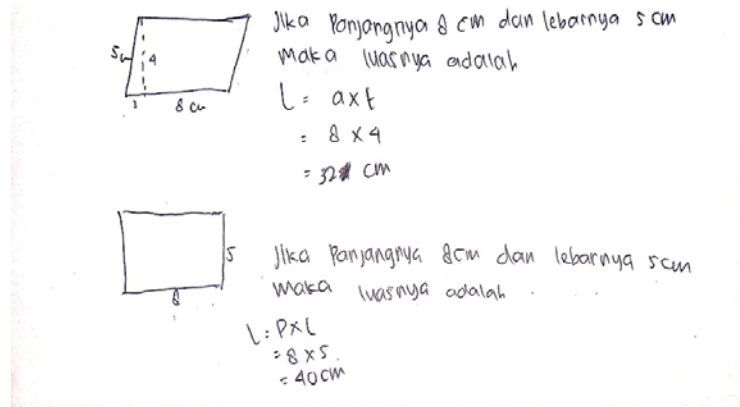 Jika Panjangnya 8 cm dan lebarnya 5 cm
maka luasnya adalah
5 cm
4
3
8 cm
L = a x t
= 8 x 4
= 32 cm
Jika Panjangnya 8cm dan lebarnya 5 cm
maka luasnya adalah
5
8
L = P x L
= 8 x 5.
= 40 cm